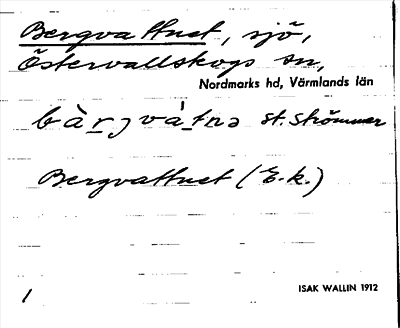 Bergvattnet, sjö,
Östervallskogs sn,
Nordmarks hd, Värmlands län
bàrgvàtnə st. strömmar
Bergvattnet (E.k.)
1
ISAK WALLIN 1912